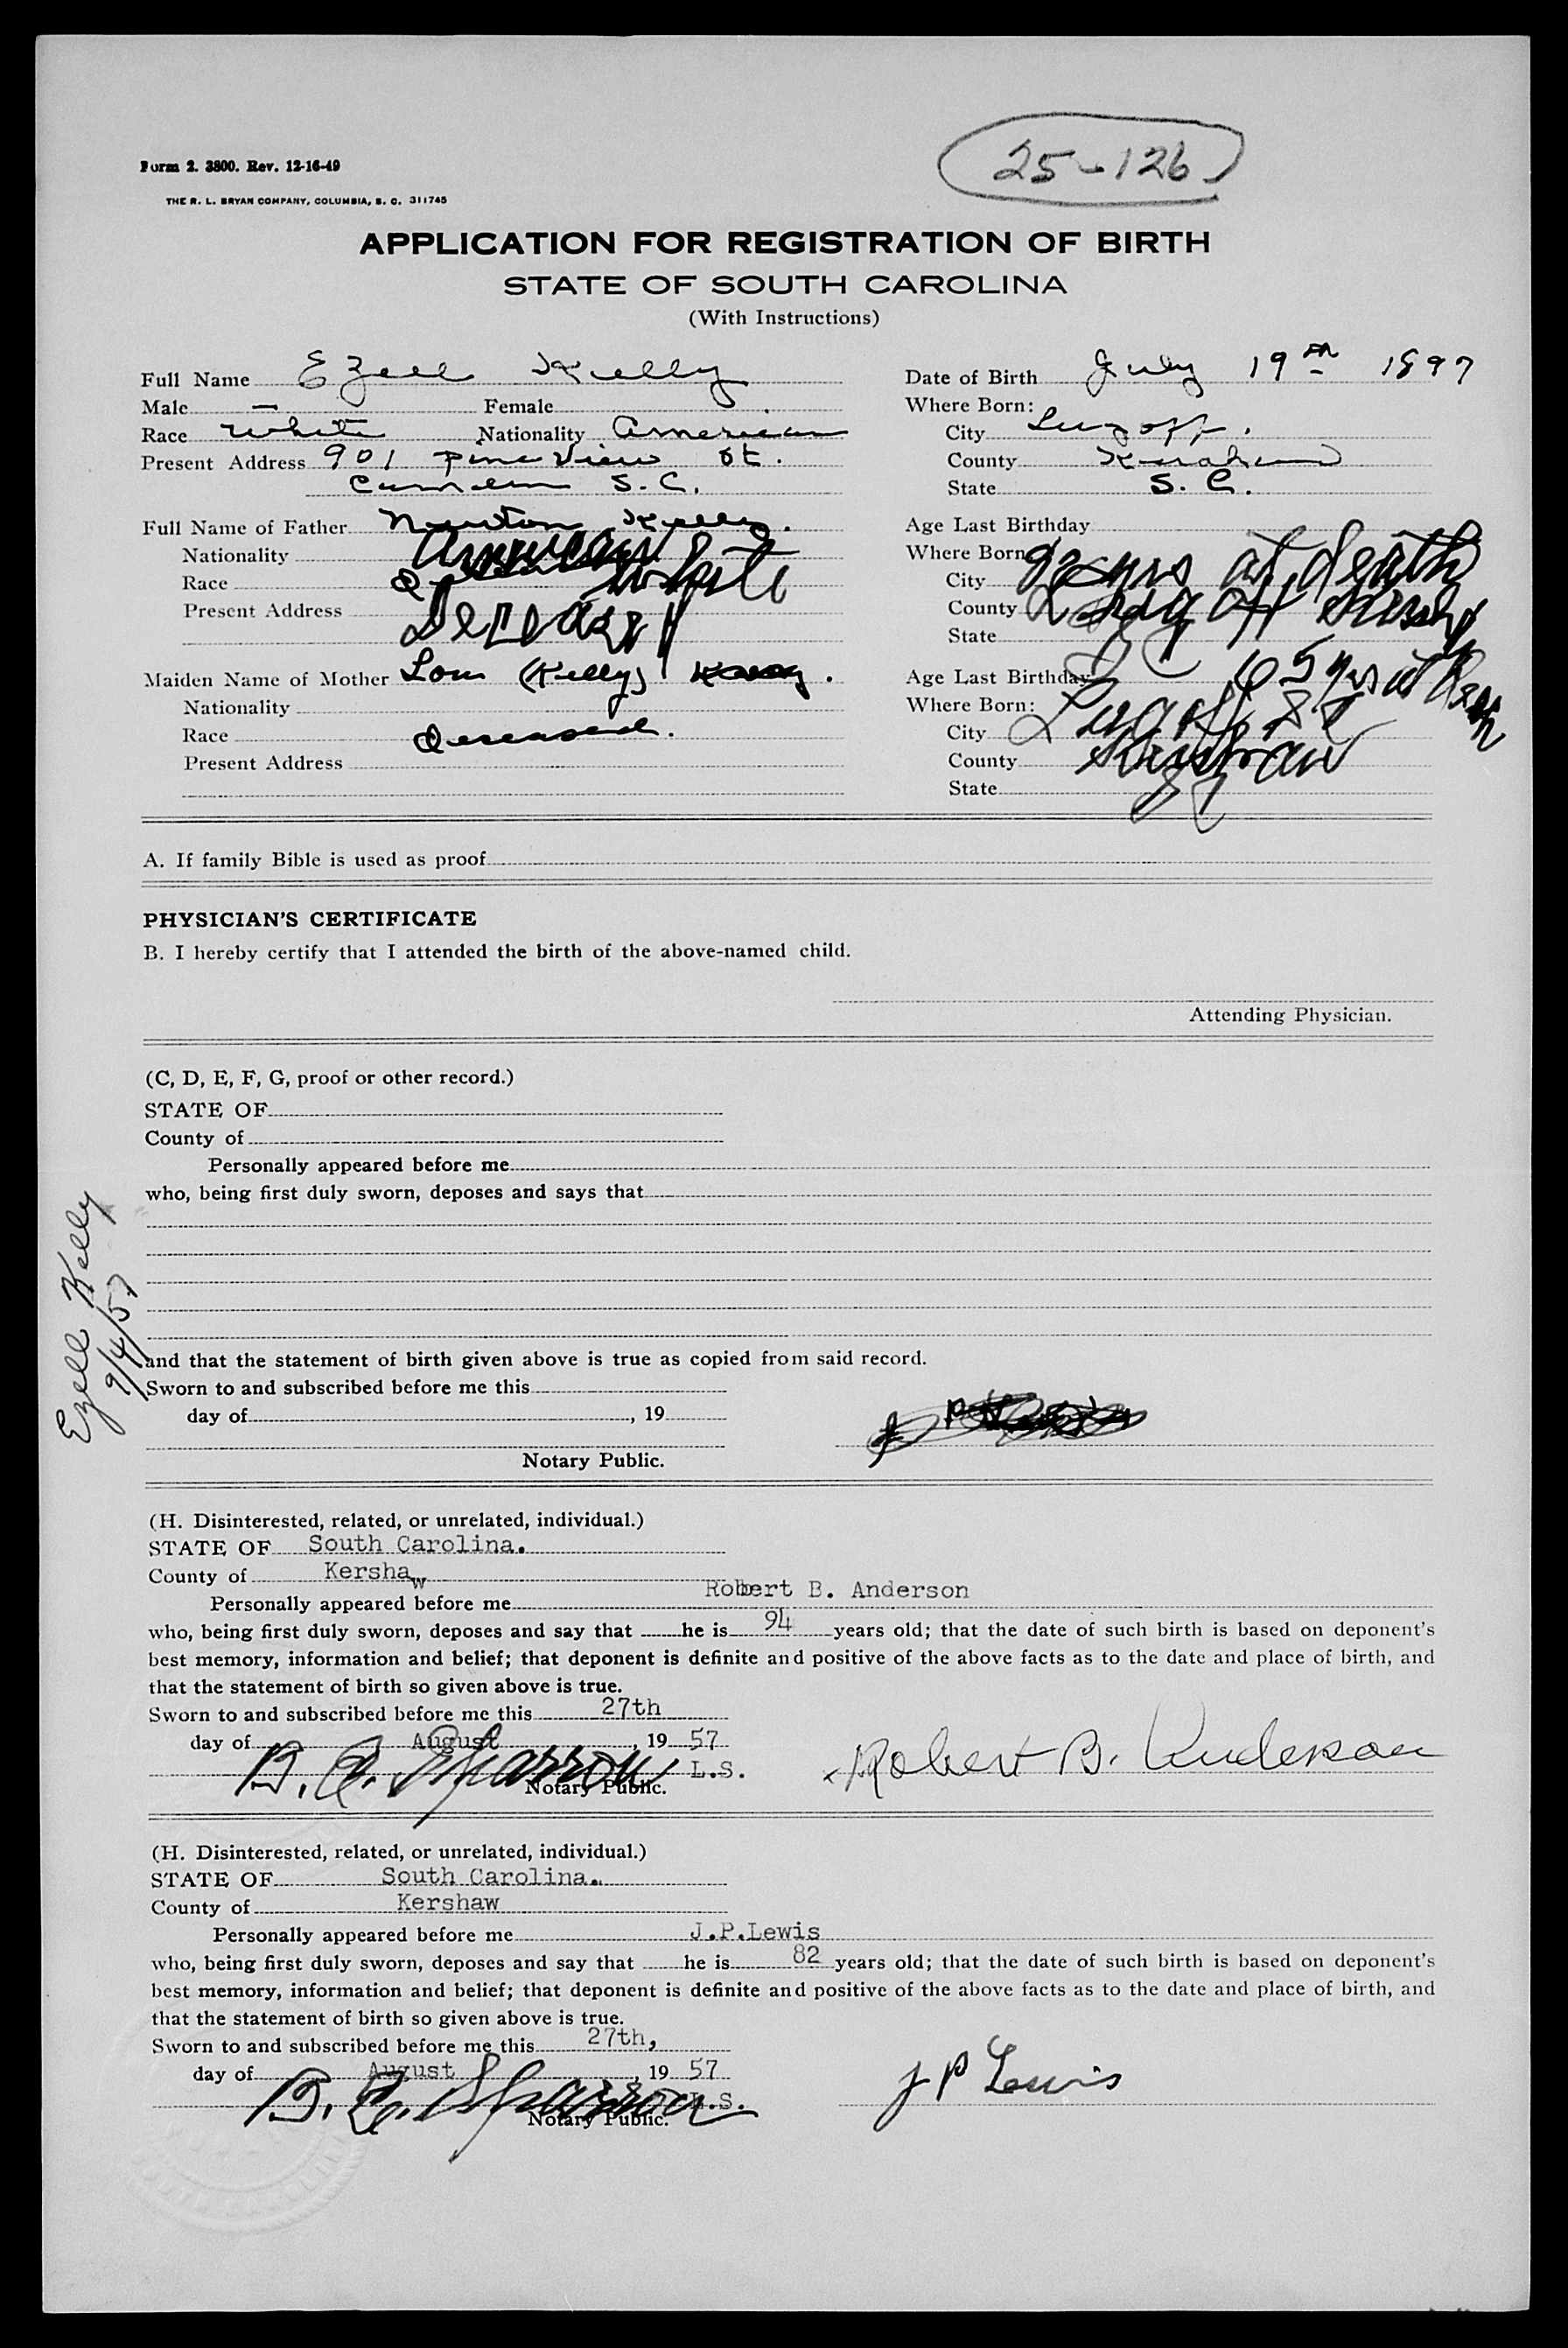 25-126
Form 2. 3800. Rev. 12-16-49
THE R. L. BRYAN COMPANY, COLUMBIA, S. C. 311745
APPLICATION FOR REGISTRATION OF BIRTH
STATE OF SOUTH CAROLINA
(With Instructions)
Full Name Ezell Kelly
Date of Birth July 19th 1897
Male — Female
Where Born:
Race White Nationality American
City Lugoff.
Present Address 901 Pine View St.
County Kershaw
Camden S.C.
State S. C.
Full Name of Father Newton Kelly.
Age Last Birthday
Nationality American
Where Born
Race White
yrs at death
City
Present Address Deceased
County Lugoff Kershaw
State S C
Maiden Name of Mother Lou (Kelly)
Age Last Birthday 65 yrs at Death
Nationality
Where Born:
Race Deceased.
City Lugoff S C
Present Address
County Kershaw
State S C
A. If family Bible is used as proof
PHYSICIAN'S CERTIFICATE
B. I hereby certify that I attended the birth of the above-named child.
Attending Physician.
(C, D, E, F, G, proof or other record.)
STATE OF
County of
Personally appeared before me
who, being first duly sworn, deposes and says that
Ezell Kelly
9/4/57
and that the statement of birth given above is true as copied from said record.
Sworn to and subscribed before me this
day of , 19
Notary Public.
(H. Disinterested, related, or unrelated, individual.)
STATE OF South Carolina.
County of Kershaw
Personally appeared before me Robert B. Anderson
who, being first duly sworn, deposes and say that he is 94 years old; that the date of such birth is based on deponent's
best memory, information and belief; that deponent is definite and positive of the above facts as to the date and place of birth, and
that the statement of birth so given above is true.
Sworn to and subscribed before me this 27th
day of August , 19 57
B. C. Sparrow L.S.
Notary Public.
Robert B. Anderson
(H. Disinterested, related, or unrelated, individual.)
STATE OF South Carolina.
County of Kershaw
Personally appeared before me J.P.Lewis
who, being first duly sworn, deposes and say that he is 82 years old; that the date of such birth is based on deponent's
best memory, information and belief; that deponent is definite and positive of the above facts as to the date and place of birth, and
that the statement of birth so given above is true.
Sworn to and subscribed before me this 27th,
day of August , 19 57
B. C. Sparrow L.S.
Notary Public.
J P Lewis